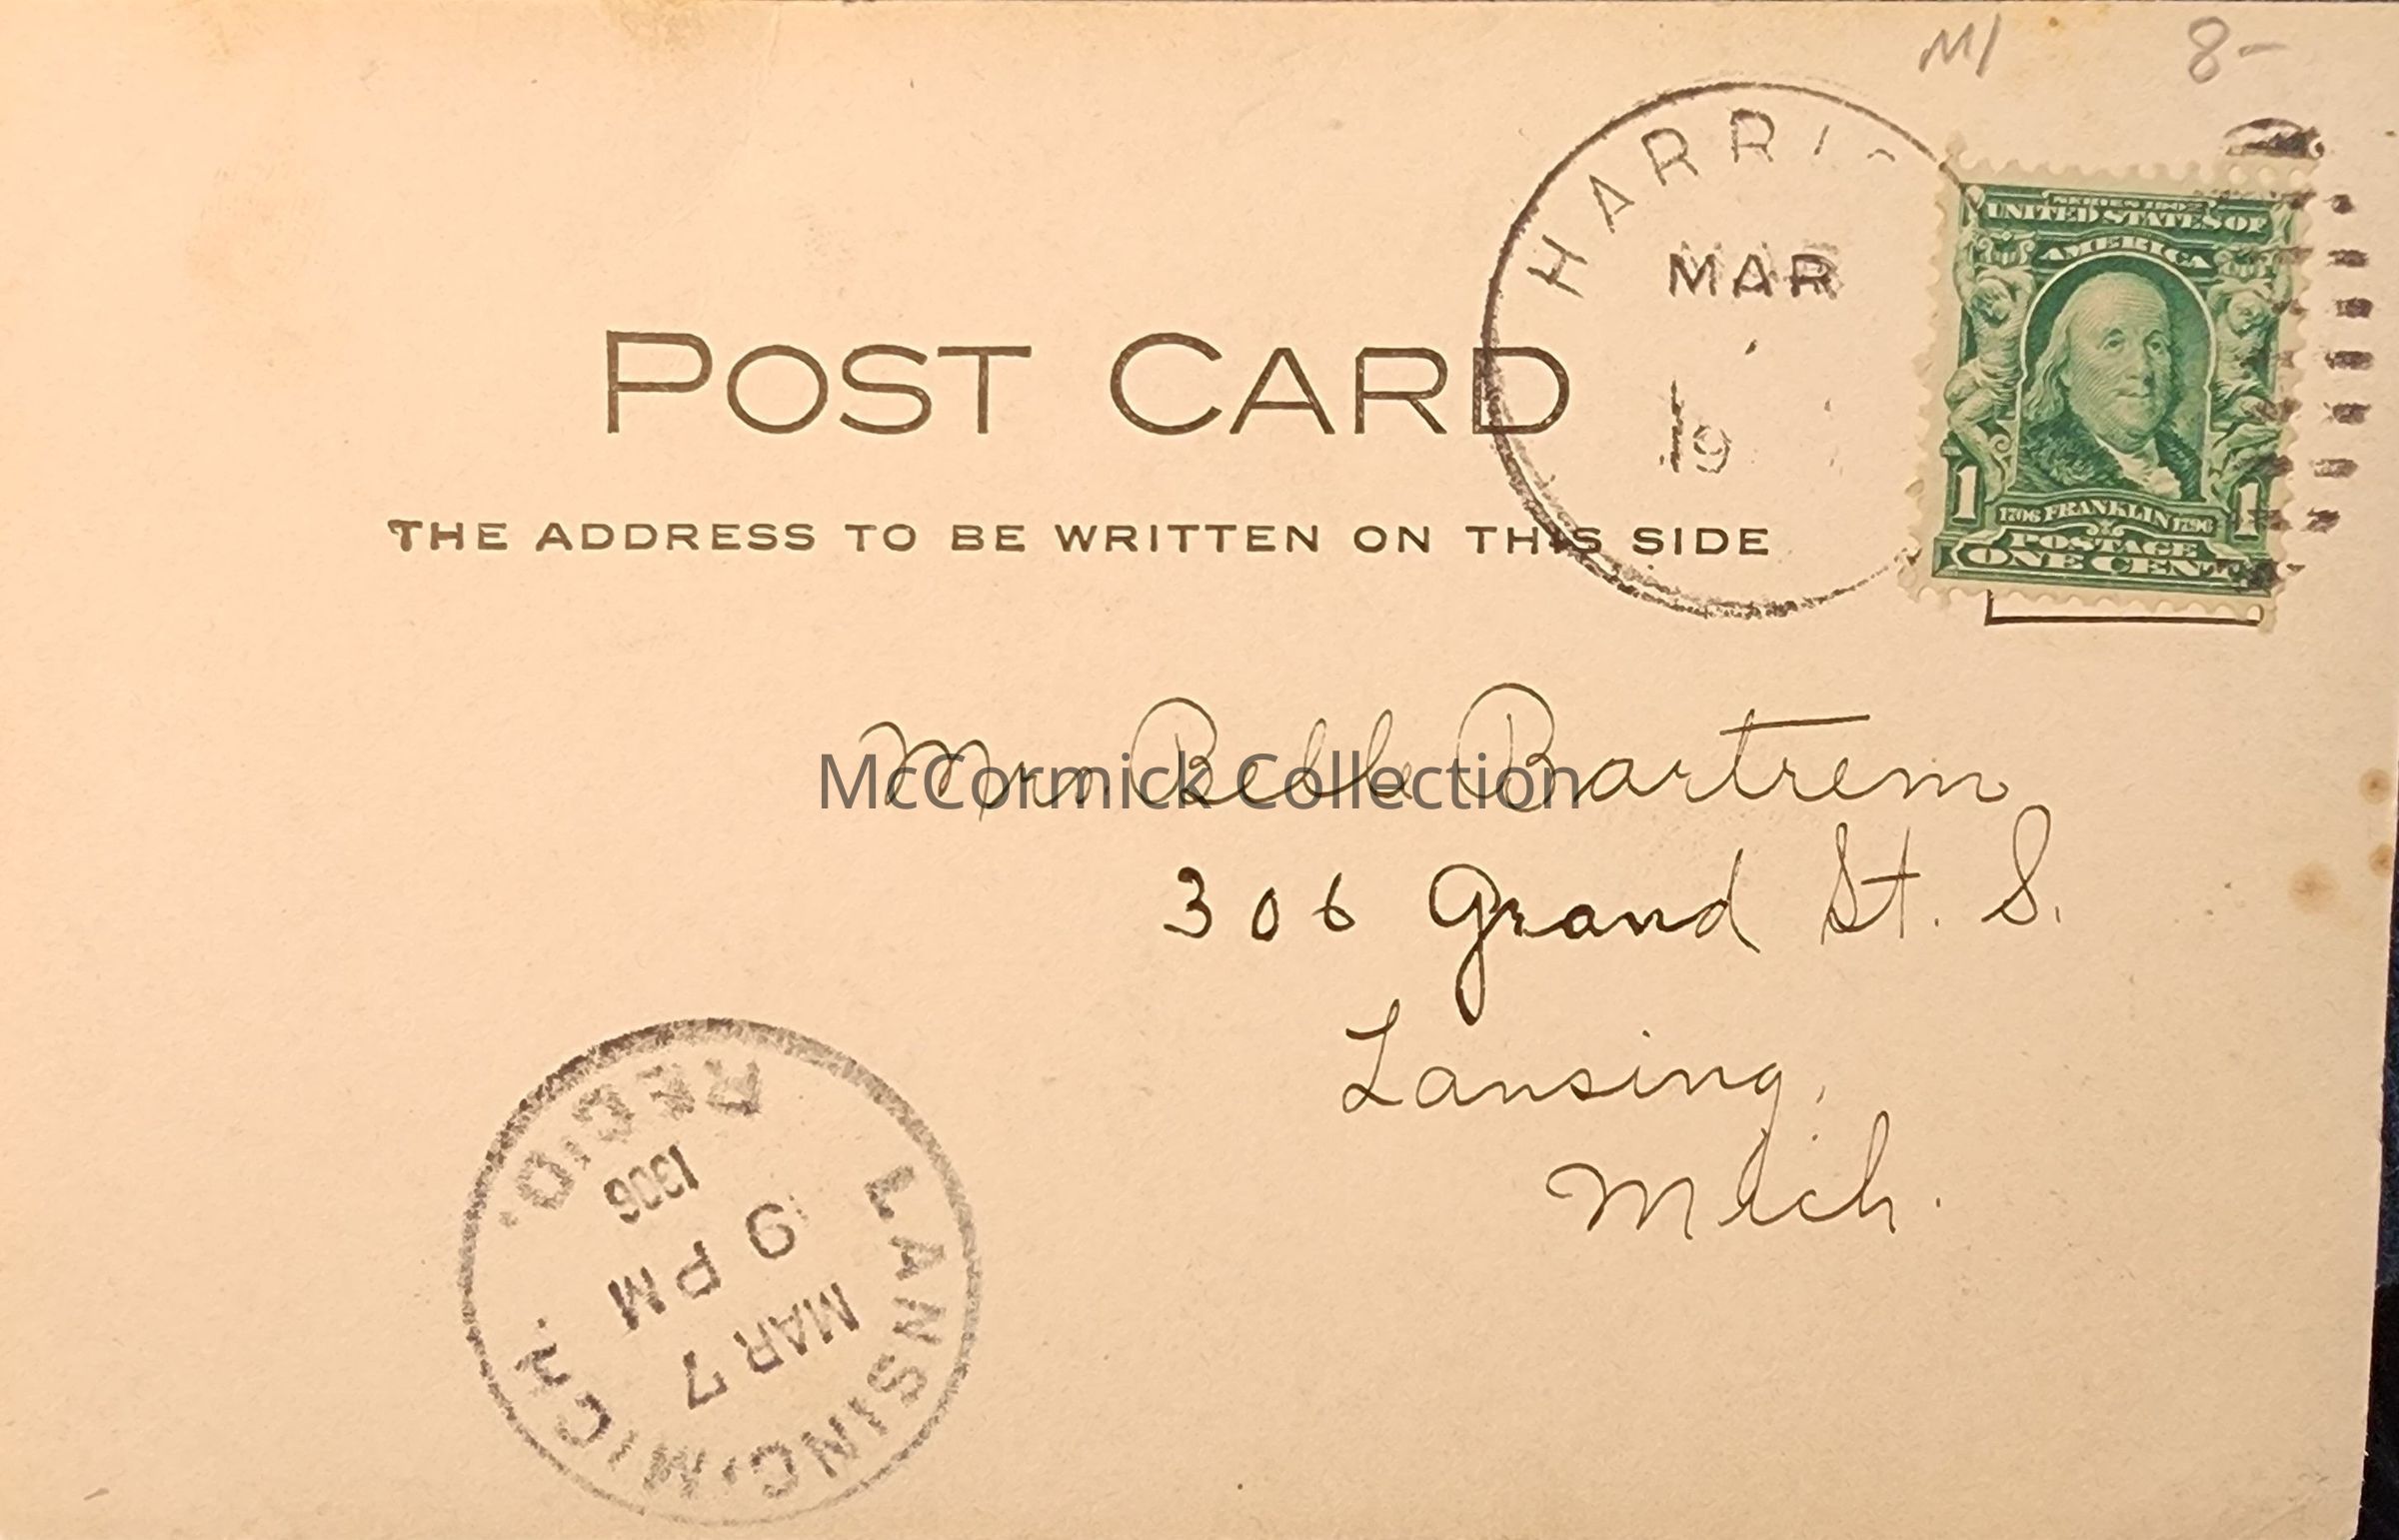 MI 8-
HARRIS
MAR
19
SERIES 1902
UNITED STATES OF
AMERICA
1 1
1706 FRANKLIN 1790
POSTAGE
ONE CENT
POST CARD
THE ADDRESS TO BE WRITTEN ON THIS SIDE
Mrs Belle Bartrem
McCormick Collection
306 Grand St. S.
Lansing,
Mich.
LANSING, MICH.
MAR 7
9 PM
1906
REC'D.